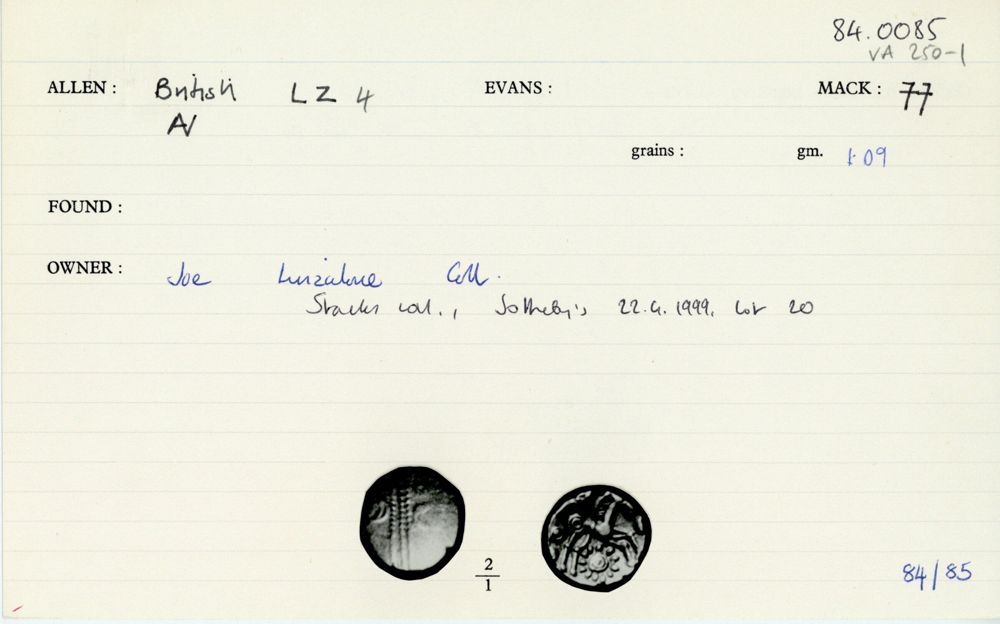 84.0085
VA 250-1
ALLEN : British LZ 4 EVANS : MACK : 77
AV
grains : gm. 1.09
FOUND :
OWNER : Joe Linzalone Coll.
Stacks coll., Sotheby's 22.4.1999, lot 20
2
1
84/85